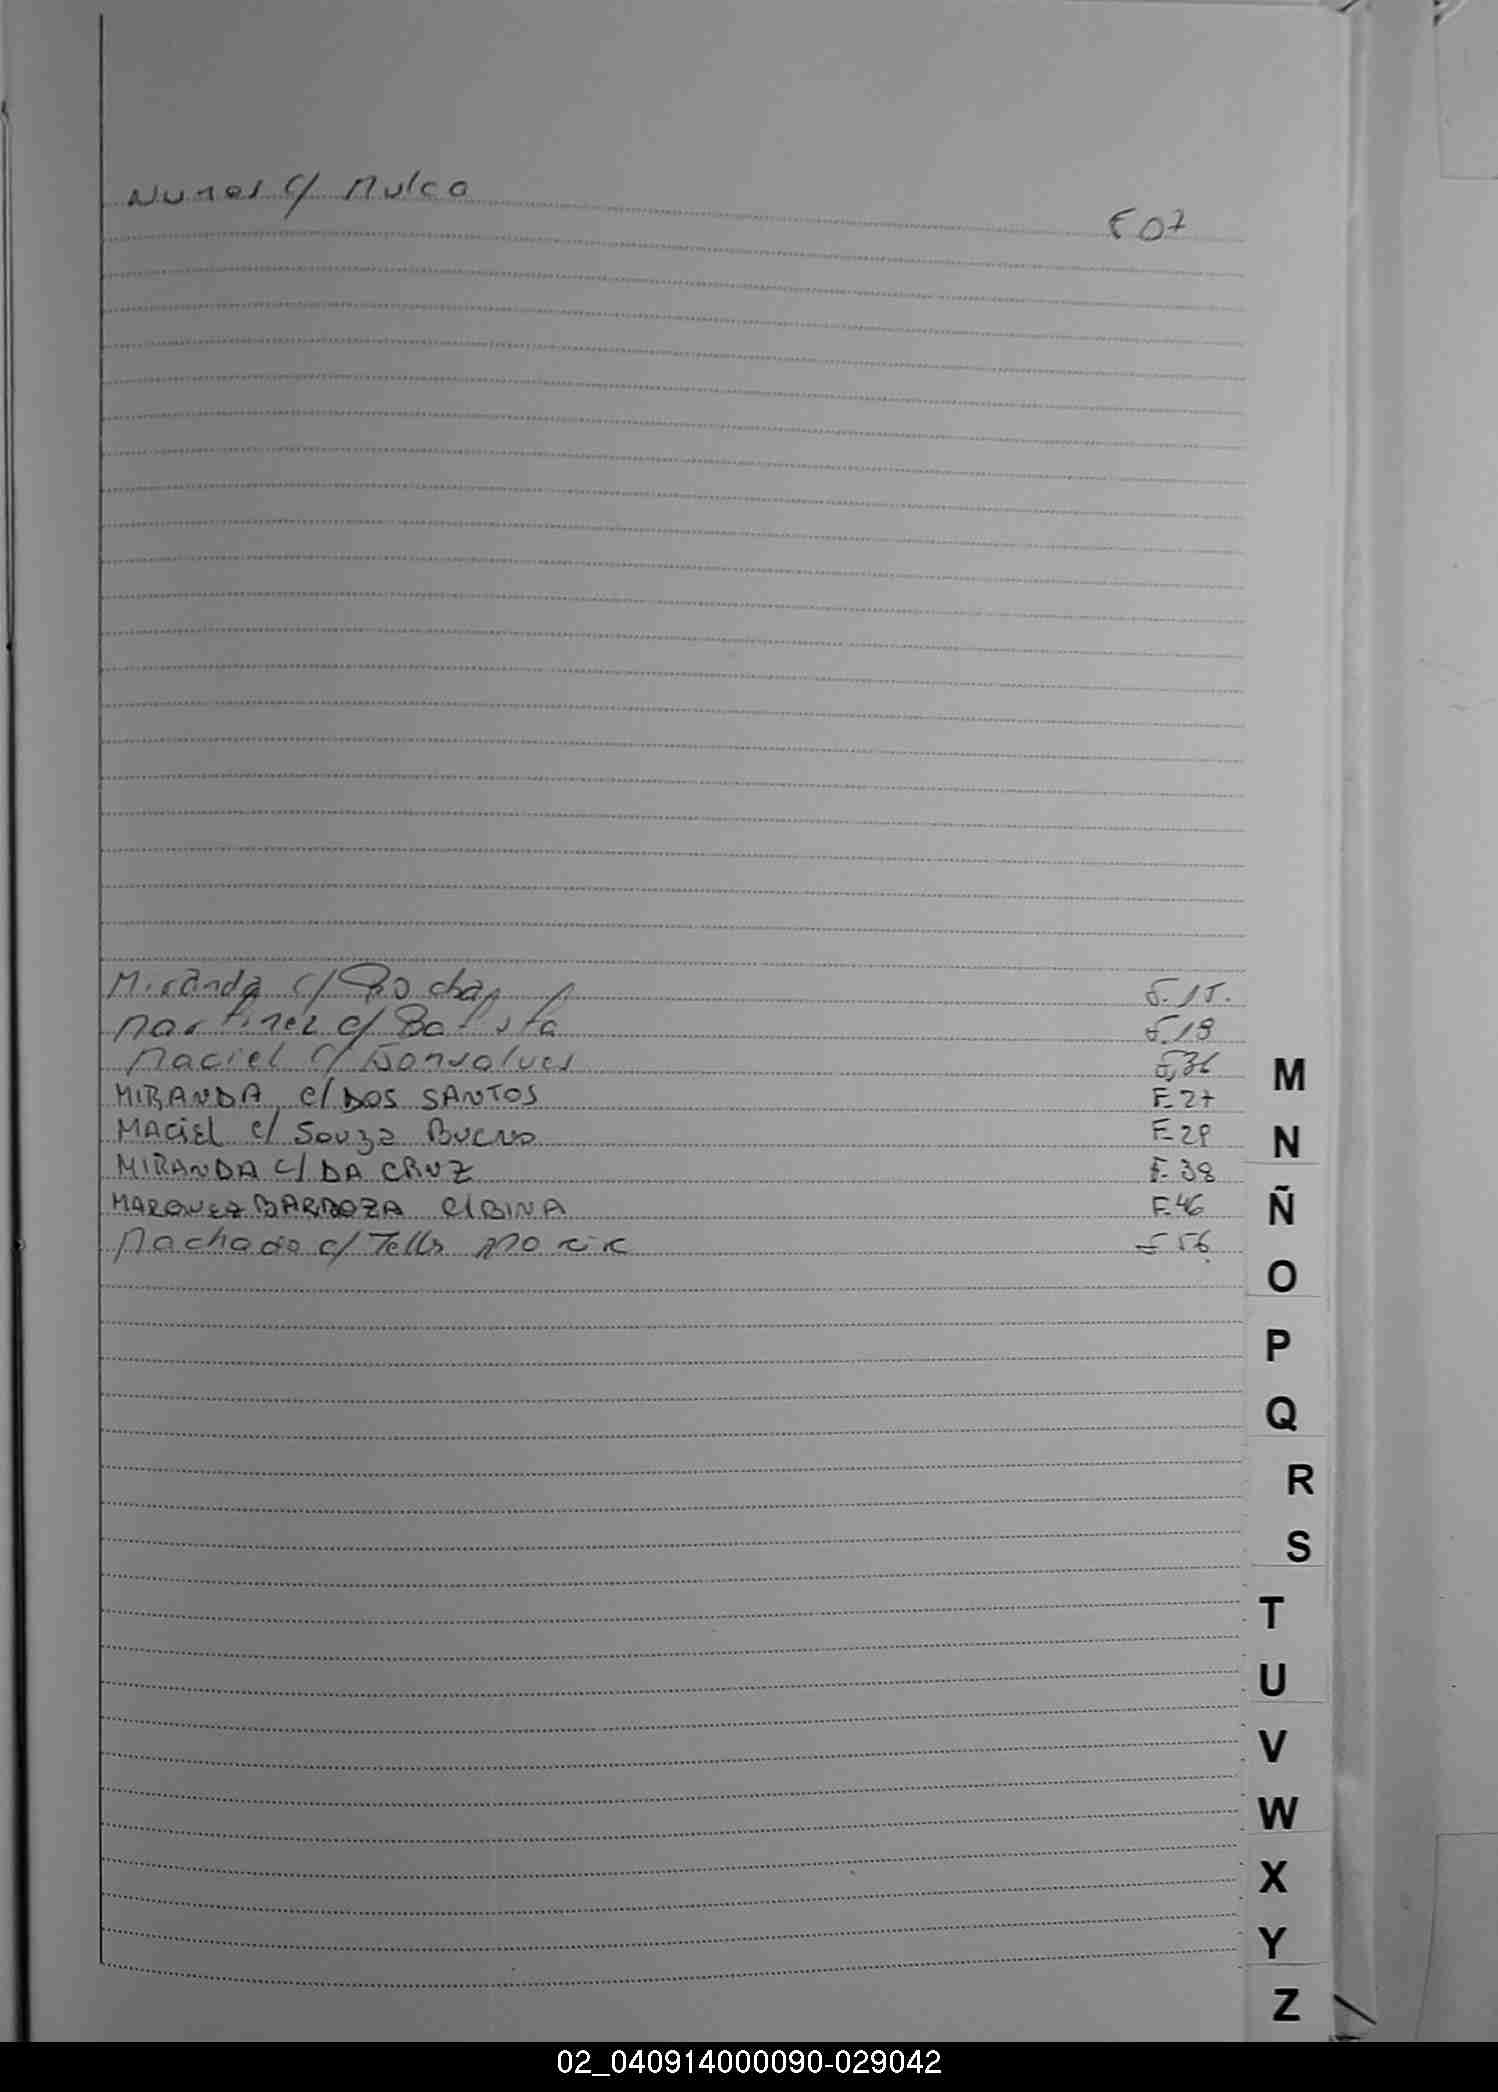 Nunes c/ Mulca F 07
Miranda c/ Rocha F. 15.
Martinez c/ Batista F. 18
Maciel c/ Gonsalves F. 36
MIRANDA c/ DOS SANTOS F. 27
MACIEL c/ Souza Bueno F. 29
MIRANDA c/ DA CRUZ F. 38
MARQUEZ BARBOZA c/ BINA F. 46
Machado c/ Tells F 56
M
N
Ñ
O
P
Q
R
S
T
U
V
W
X
Y
Z
02_040914000090-029042